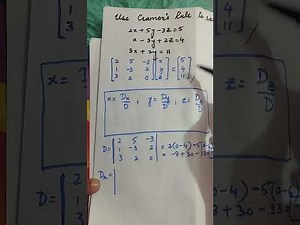 Use Cramer's Rule to
2x + 5y - 3z = 5
x - 3y + 2z = 4
3x + 2y = 11
[2 5 -3; 1 -3 2; 3 2 0] [x y z] = [5 4 11]
x = Dx/D ; y = Dy/D ; z = Dz/D
D = |2 5 -3; 1 -3 2; 3 2 0| = 2(0-4) -5(0-
= -8 + 30 - 33
Dx = |